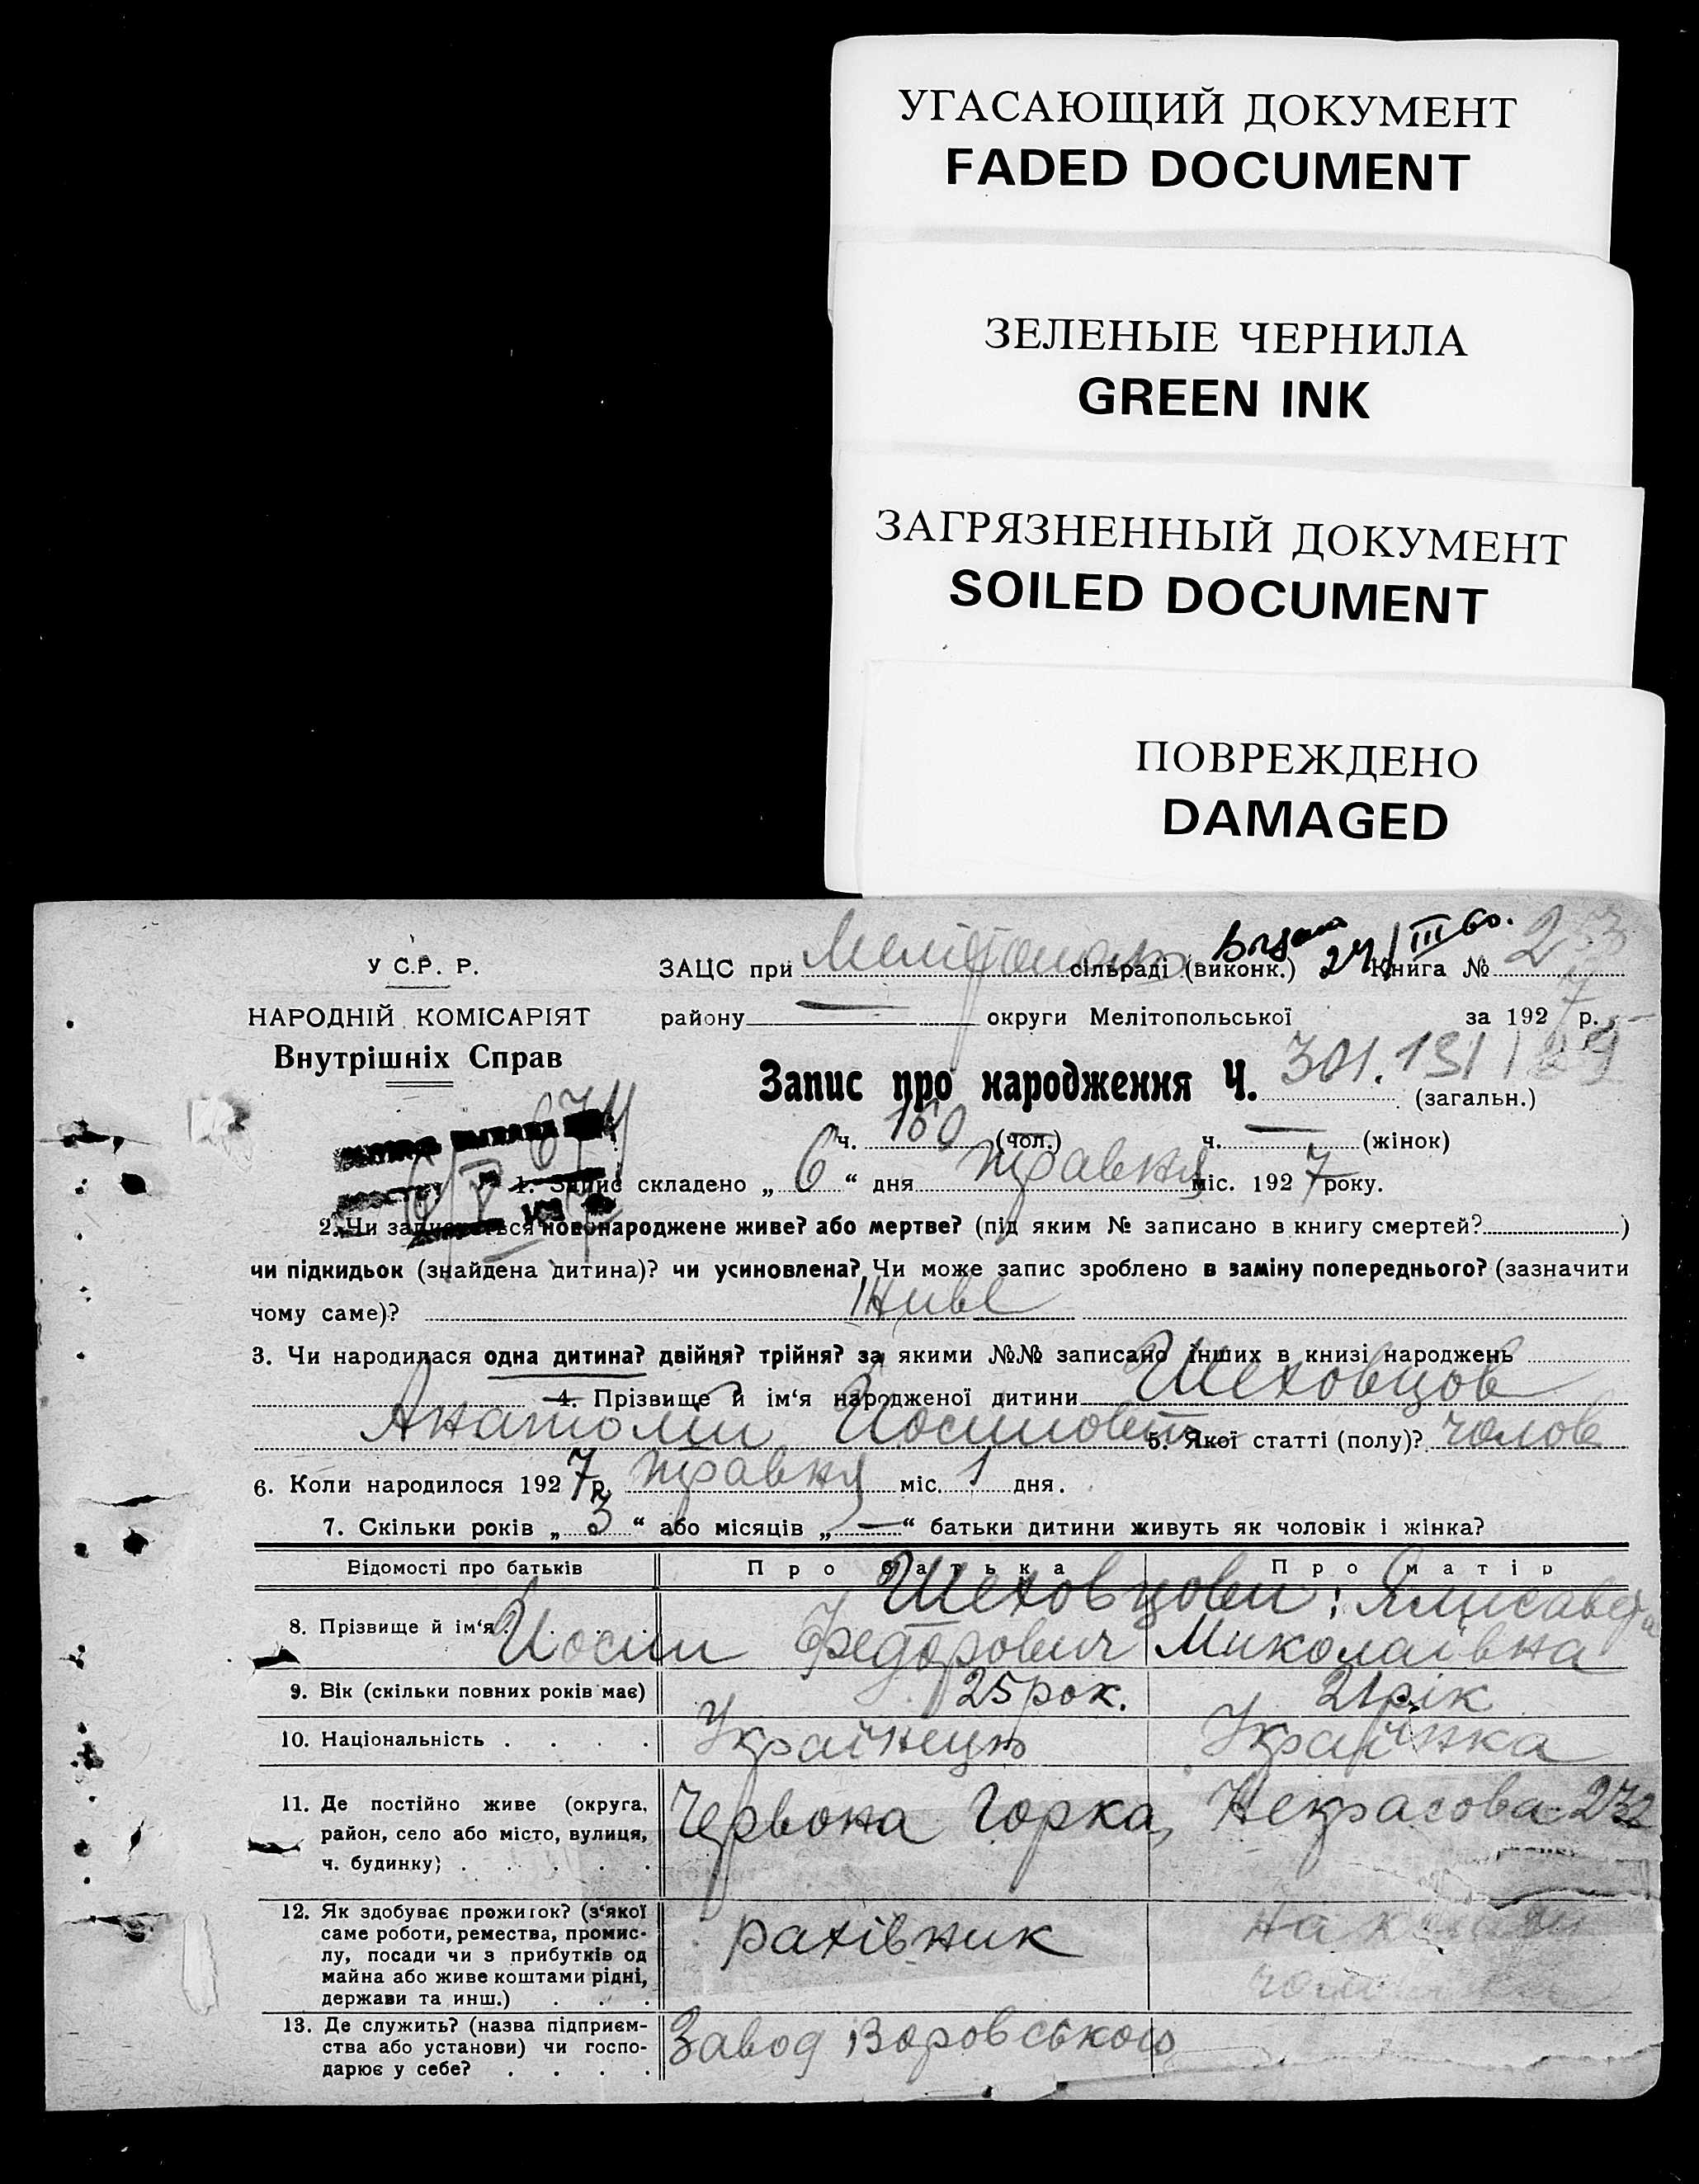 УГАСАЮЩИЙ ДОКУМЕНТ
FADED DOCUMENT
ЗЕЛЕНЫЕ ЧЕРНИЛА
GREEN INK
ЗАГРЯЗНЕННЫЙ ДОКУМЕНТ
SOILED DOCUMENT
ПОВРЕЖДЕНО
DAMAGED
27/III 60.
У С.Р. Р.
ЗАЦС при сільраді (виконк.) Книга № 253
НАРОДНІЙ КОМІСАРІЯТ
району — округи Мелітопольської за 1927 р.
Внутрішніх Справ
Запис про народження Ч. 301. 131
(загальн.)
674
ч. 150 (чол.) ч. — (жінок)
1. Запис складено „ 6 “ дня травня міс. 1927 року.
2. Чи записується новонароджене живе? або мертве? (під яким № записано в книгу смертей? )
чи підкидьок (знайдена дитина)? чи усиновлена? Чи може запис зроблено в заміну попереднього? (зазначити
чому саме)? Живе
3. Чи народилася одна дитина? двійня? трійня? за якими №№ записано інших в книзі народжень
4. Прізвище й ім‘я народженої дитини Шеховцов
Анатолій Йосипович 5. Якої статті (полу)? чолов
6. Коли народилося 1927 р. травня міс. 1 дня.
7. Скільки років „ 3 “ або місяців „ — “ батьки дитини живуть як чоловік і жінка?
Відомості про батьків Про батька Про матір
Шеховцови: Єлисавета
8. Прізвище й ім‘я . Йосип Федорович Миколаївна
9. Вік (скільки повних років має) 25 рок. 21 рік
10. Національність . . . . Українець Українка
11. Де постійно живе (округа,
район, село або місто, вулиця,
ч. будинку) . . . . . Червона Горка, Некрасова 232
12. Як здобуває прожиток? (з‘якої
саме роботи, ремества, промис-
лу, посади чи з прибутків од
майна або живе коштами рідні,
держави та инш.) . . . рахівник На
13. Де служить? (назва підприєм-
ства або установи) чи госпо-
дарює у себе? . . . . Завод Воровського